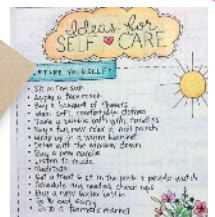 Ideas for
SELF CARE
• Sit in the sun
• Apply a face mask
• Buy a bouquet of flowers
• Wear soft, comfortable clothes
• Take a bubble bath with candles
• Buy a fun new color of nail polish
• Wrap up in a warm blanket
• Drive with the windows down
• Buy a new candle
• Listen to music
• Meditate
• Get a treat & sit in the park & people watch
• Schedule any needed check ups
• Buy a new water bottle
• Go to bed early
• Go to a farmer's market